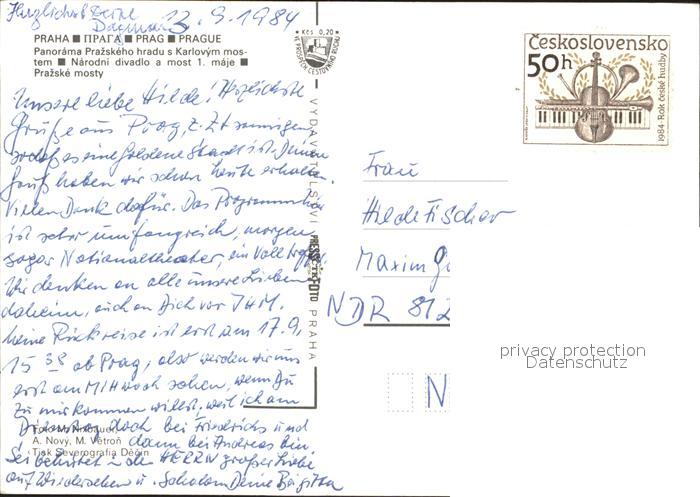 Herzlichst Deine
Dagmar
13.9.1984
PRAHA ■ ПРАГА ■ PRAG ■ PRAGUE
Panoráma Pražského hradu s Karlovým mos-
tem ■ Národní divadlo a most 1. máje ■
Pražské mosty
Kčs 0,20
VE PROSPĚCH CESTOVNÍHO RUCHU
Československo
50h
1984 · Rok české hudby
Unsere liebe Hilde! Herzlichste
Grüße aus Prag, z. Zt sonnigen,
sodaß es eine Goldene Stadt ist. Deinen
Gruß haben wir schon heute erhalten.
Vielen Dank dafür. Das Programm hier
ist sehr umfangreich, morgen
sogar Nationaltheater, ein Volltreffer.
Wir denken an alle unsere Lieben
daheim, auch an Dich vor IHM.
Meine Rückreise ist erst am 17.9.
15 38 ab Prag, also werden wir uns
erst am Mittwoch sehen, wenn Du
zu mir kommen willst, weil ich am
Dienstag doch bei Friedrichs und
dann bei Andreas bin
Sei behütet in des HERRN großer Liebe
auf Wiedersehen u. Schalom Deine Birgitta
A. Nový, M. Větroň
Tisk Severografia Děčín
VYDAVATELSTVÍ PRESSFOTO PRAHA
Frau
Hilde Fischer
Maxim G
NDR 812
N
privacy protection
Datenschutz